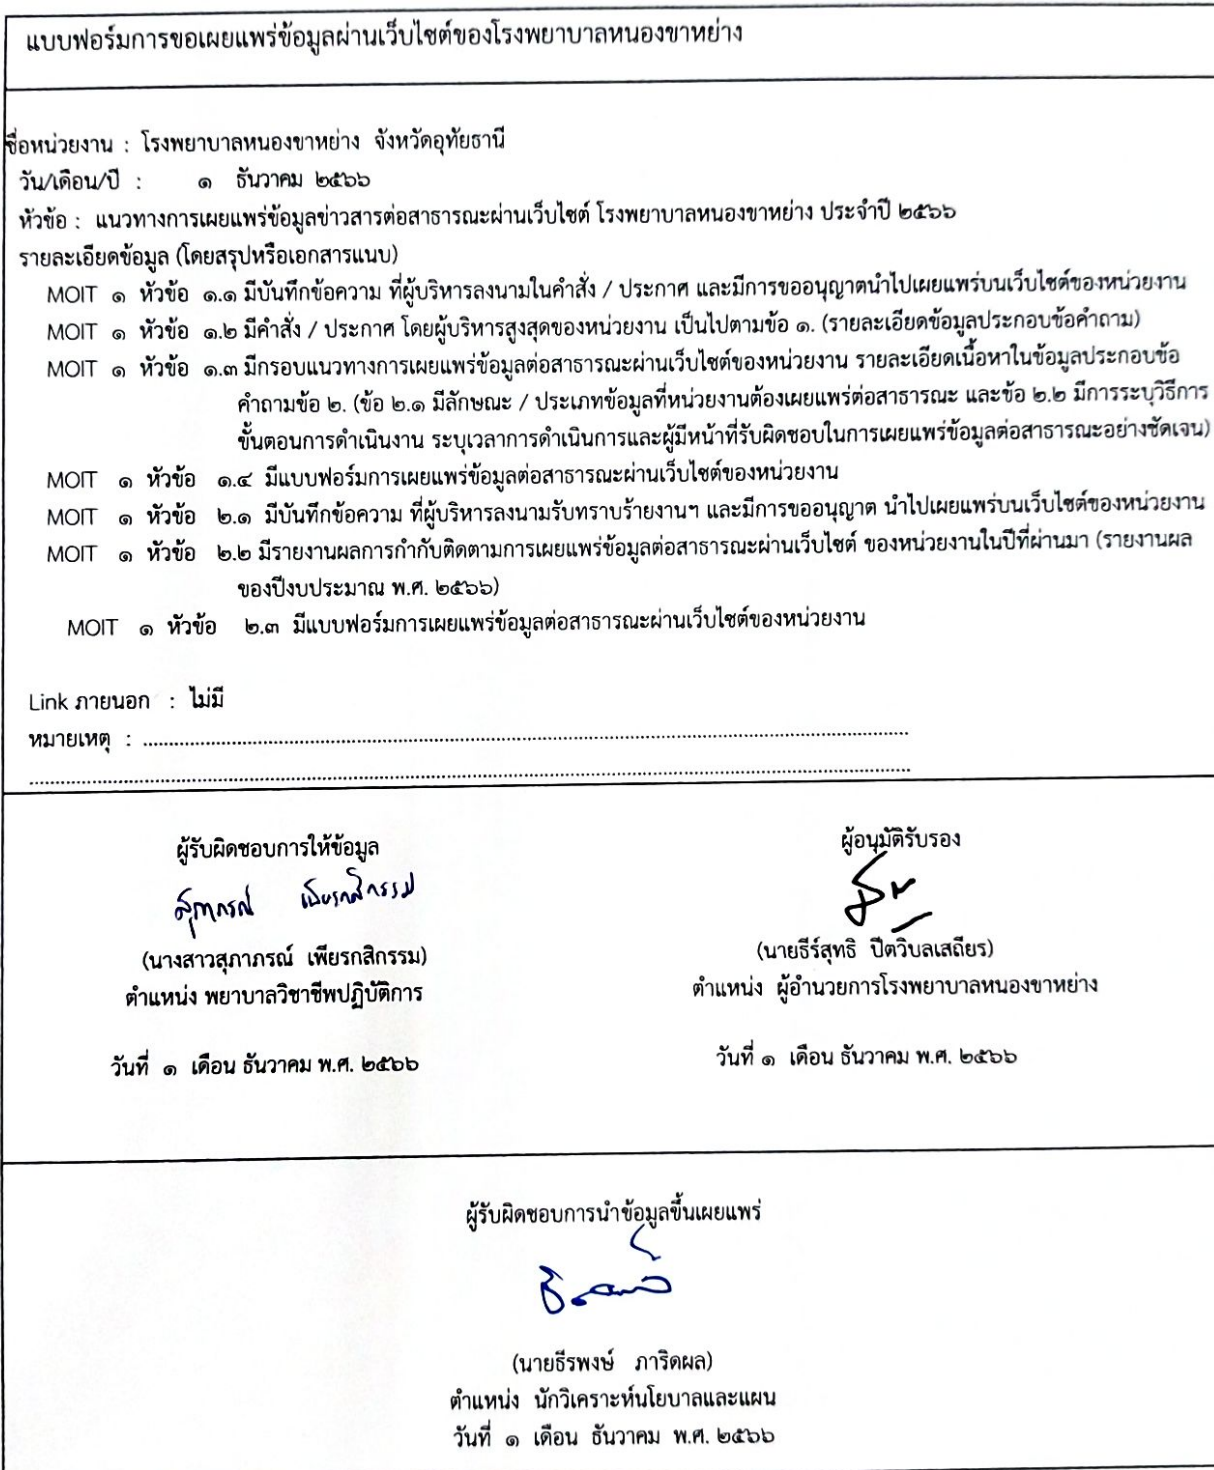 แบบฟอร์มการขอเผยแพร่ข้อมูลผ่านเว็บไซต์ของโรงพยาบาลหนองขาหย่าง
ชื่อหน่วยงาน : โรงพยาบาลหนองขาหย่าง จังหวัดอุทัยธานี
วัน/เดือน/ปี : ๑ ธันวาคม ๒๕๖๖
หัวข้อ : แนวทางการเผยแพร่ข้อมูลข่าวสารต่อสาธารณะผ่านเว็บไซต์ โรงพยาบาลหนองขาหย่าง ประจำปี ๒๕๖๖
รายละเอียดข้อมูล (โดยสรุปหรือเอกสารแนบ)
MOIT ๑ หัวข้อ ๑.๑ มีบันทึกข้อความ ที่ผู้บริหารลงนามในคำสั่ง / ประกาศ และมีการขออนุญาตนำไปเผยแพร่บนเว็บไซต์ของหน่วยงาน
MOIT ๑ หัวข้อ ๑.๒ มีคำสั่ง / ประกาศ โดยผู้บริหารสูงสุดของหน่วยงาน เป็นไปตามข้อ ๑. (รายละเอียดข้อมูลประกอบข้อคำถาม)
MOIT ๑ หัวข้อ ๑.๓ มีกรอบแนวทางการเผยแพร่ข้อมูลต่อสาธารณะผ่านเว็บไซต์ของหน่วยงาน รายละเอียดเนื้อหาในข้อมูลประกอบข้อ
คำถามข้อ ๒. (ข้อ ๒.๑ มีลักษณะ / ประเภทข้อมูลที่หน่วยงานต้องเผยแพร่ต่อสาธารณะ และข้อ ๒.๒ มีการระบุวิธีการ
ขั้นตอนการดำเนินงาน ระบุเวลาการดำเนินการและผู้มีหน้าที่รับผิดชอบในการเผยแพร่ข้อมูลต่อสาธารณะอย่างชัดเจน)
MOIT ๑ หัวข้อ ๑.๔ มีแบบฟอร์มการเผยแพร่ข้อมูลต่อสาธารณะผ่านเว็บไซต์ของหน่วยงาน
MOIT ๑ หัวข้อ ๒.๑ มีบันทึกข้อความ ที่ผู้บริหารลงนามรับทราบร้ายงานฯ และมีการขออนุญาต นำไปเผยแพร่บนเว็บไซต์ของหน่วยงาน
MOIT ๑ หัวข้อ ๒.๒ มีรายงานผลการกำกับติดตามการเผยแพร่ข้อมูลต่อสาธารณะผ่านเว็บไซต์ ของหน่วยงานในปีที่ผ่านมา (รายงานผล
ของปีงบประมาณ พ.ศ. ๒๕๖๖)
MOIT ๑ หัวข้อ ๒.๓ มีแบบฟอร์มการเผยแพร่ข้อมูลต่อสาธารณะผ่านเว็บไซต์ของหน่วยงาน
Link ภายนอก : ไม่มี
หมายเหตุ : ....................
ผู้รับผิดชอบการให้ข้อมูล
สุภาภรณ์ เพียรกสิกรรม
(นางสาวสุภาภรณ์ เพียรกสิกรรม)
ตำแหน่ง พยาบาลวิชาชีพปฏิบัติการ
วันที่ ๑ เดือน ธันวาคม พ.ศ. ๒๕๖๖
ผู้อนุมัติรับรอง
(นายธีร์สุทธิ ปีตวิบลเสถียร)
ตำแหน่ง ผู้อำนวยการโรงพยาบาลหนองขาหย่าง
วันที่ ๑ เดือน ธันวาคม พ.ศ. ๒๕๖๖
ผู้รับผิดชอบการนำข้อมูลขึ้นเผยแพร่
(นายธีรพงษ์ ภาริดผล)
ตำแหน่ง นักวิเคราะห์นโยบาลและแผน
วันที่ ๑ เดือน ธันวาคม พ.ศ. ๒๕๖๖